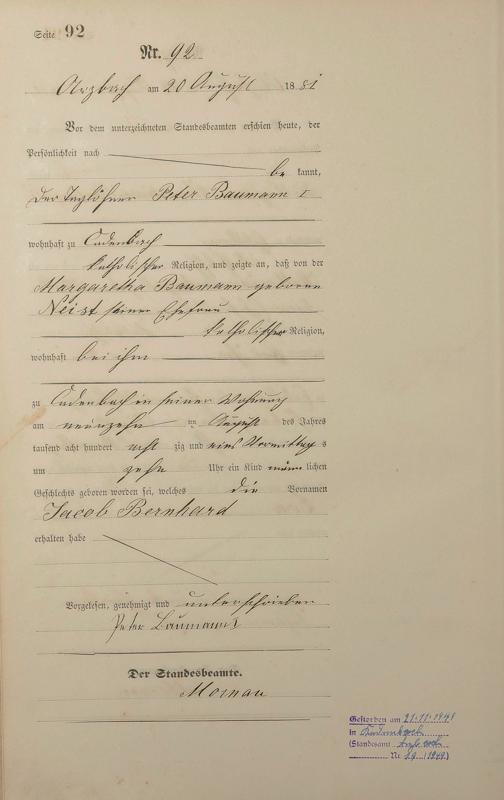 Seite 92
Nr. 92
Arzbach am 20 August 1881
Vor dem unterzeichneten Standesbeamten erschien heute, der
Persönlichkeit nach
be kannt,
der Taglöhner Peter Baumann I
wohnhaft zu Cadenbach
katholischer Religion, und zeigte an, daß von der
Margaretha Baumann geboren
Neist seiner Ehefrau
katholischer Religion,
wohnhaft bei ihm
zu Cadenbach in seiner Wohnung
am neunzehn ten August des Jahres
tausend acht hundert acht zig und eins Vormittag s
um zehn Uhr ein Kind männ lichen
Geschlechts geboren worden sei, welches die Vornamen
Jacob Bernhard
erhalten habe
Vorgelesen, genehmigt und unterschrieben
Peter Baumann I
Der Standesbeamte.
Mornau
Gestorben am 21.11.1949
in Kadenbach
(Standesamt
Nr 19 (1949)